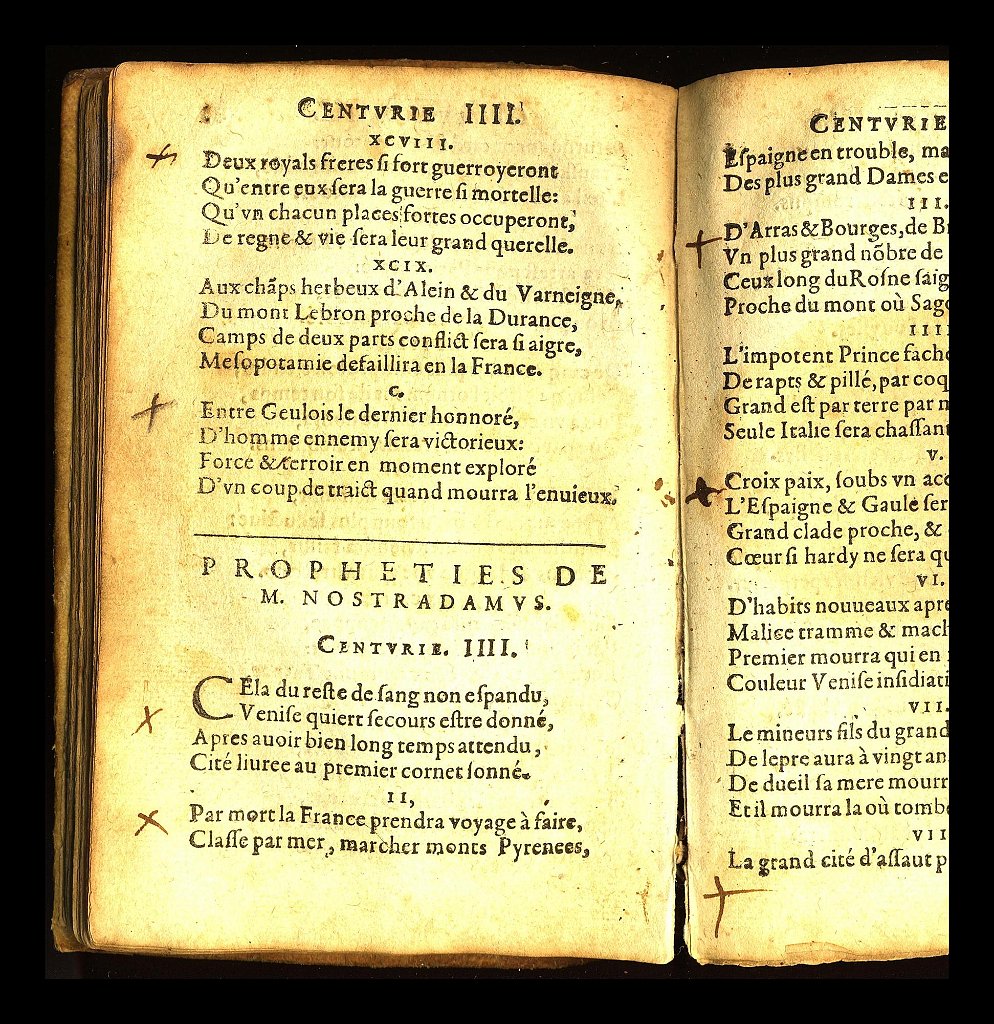 CENTVRIE IIII.
XCVIII.
Deux royals freres ſi fort guerroyeront
Qu'entre eux ſera la guerre ſi mortelle:
Qu'vn chacun places fortes occuperont,
De regne & vie ſera leur grand querelle.
XCIX.
Aux chãps herbeux d'Alein & du Varneigne,
Du mont Lebron proche de la Durance,
Camps de deux parts conflict ſera ſi aigre,
Meſopotamie defaillira en la France.
C.
Entre Geulois le dernier honnoré,
D'homme ennemy ſera victorieux:
Force & terroir en moment exploré
D'vn coup de traict quand mourra l'enuieux.
PROPHETIES DE
M. NOSTRADAMVS.
CENTVRIE. IIII.
CEla du reſte de ſang non eſpandu,
Veniſe quiert ſecours eſtre donné,
Apres auoir bien long temps attendu,
Cité liuree au premier cornet ſonné.
II,
Par mort la France prendra voyage à faire,
Claſſe par mer, marcher monts Pyrenees,
CENTVRIE
Eſpaigne en trouble, ma
Des plus grand Dames e
III.
D'Arras & Bourges, de B
Vn plus grand nõbre de
Ceux long du Roſne ſaig
Proche du mont où Sag
IIII
L'impotent Prince fach
De rapts & pillé, par coq
Grand eſt par terre par
Seule Italie ſera chaſſant
V.
Croix paix, ſoubs vn acc
L'Eſpaigne & Gaule ſer
Grand clade proche, &
Cœur ſi hardy ne ſera qu
VI.
D'habits nouueaux apre
Malice tramme & mach
Premier mourra qui en
Couleur Veniſe inſidiati
VII.
Le mineurs fils du grand
De lepre aura à vingt an
De dueil ſa mere mourr
Et il mourra la où tomb
VII
La grand cité d'aſſaut p